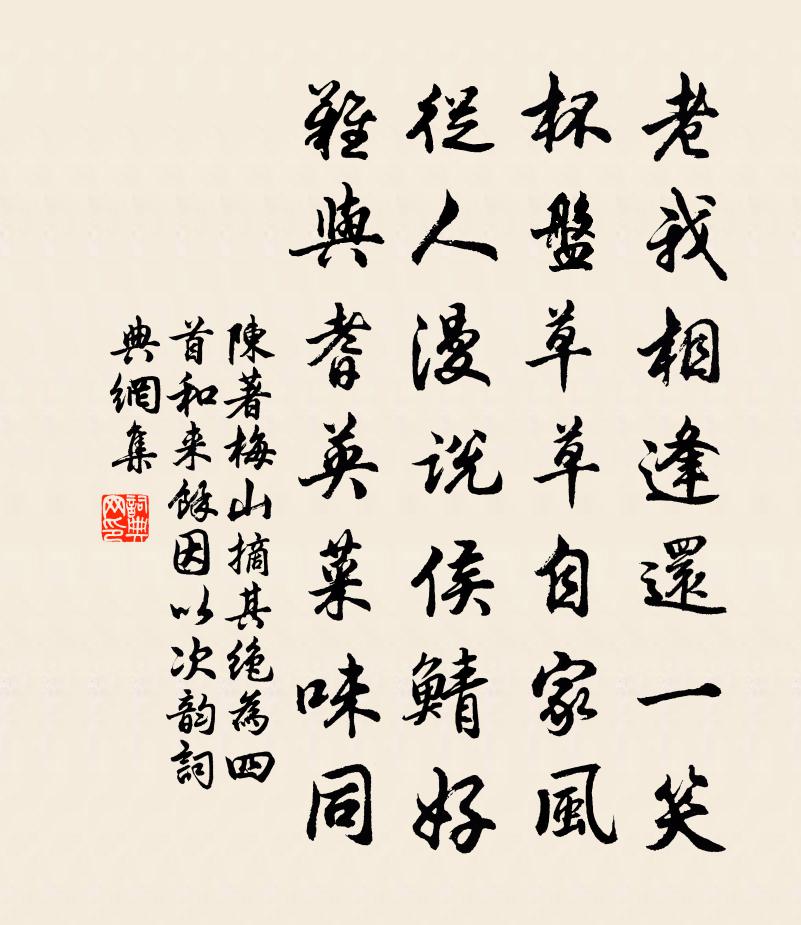 老我相逢還一笑
杯盤草草自家風
從人漫說侯鯖好
難與耆英菜味同
陳著梅山摘其絶為四
首和来餘因以次韵詞
典網集
詞典
网印